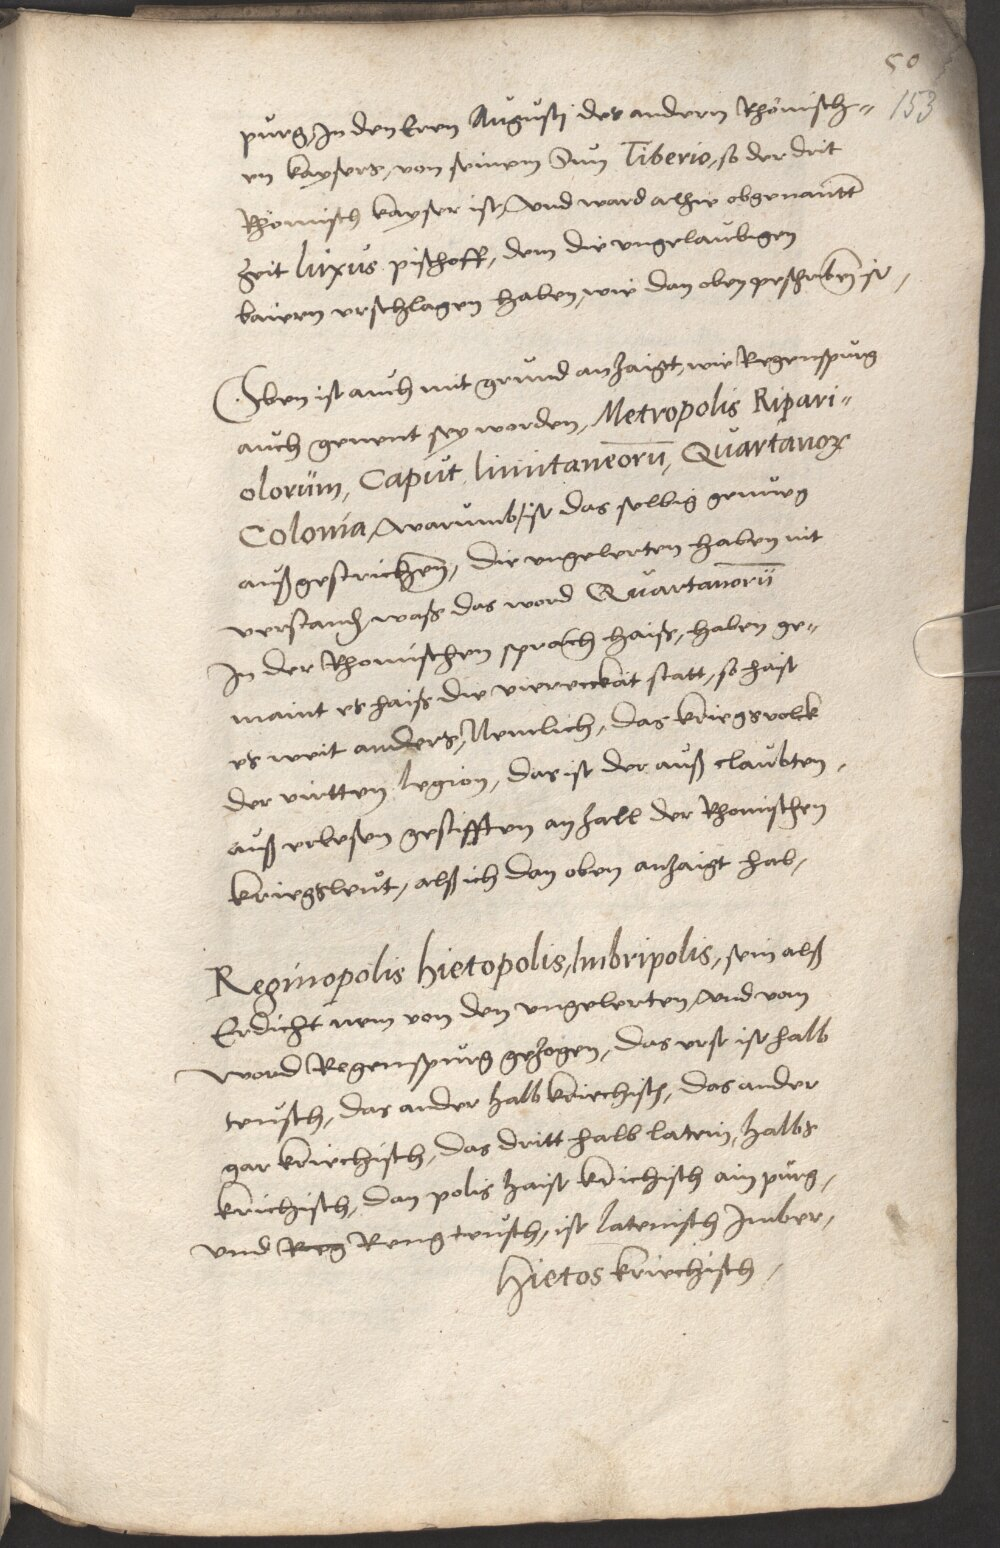 50
153
purg, In den Eren Augusti des andern Rhömisch=
en kaysers, von seinem Sun Tiberio, so der drit
Rhömisch kayser ist, Und ward alhie obgenantt
Zeit lupus pischoff, dem die ungelaubigen
baiern erschlagen haben, wie dan oben peschriben ist,
Oben ist auch mit grund anzaigt, wie Regenspurg
auch genent sey worden, Metropolis Ripari=
olorum, Caput limitaneorū, Quartanoꝝ
Colonia, warumb ist das selbig genueg
außgestrichen, die ungelerten haben nit
verstandn waß das word Quartanorū
In der Rhomischen sprach haiß, haben ge=
maint es haiß die viereckat statt, so haist
es weit anders, Nemlich, das kriegsvolck
der virtten legion, das ist der auß claubten,
auß erlesen gestifften anzall der Rhomischen
kriegsleut, alß ich dan oben anzaigt hab,
Reginopolis hietopolis, Imbripolis, sein alß
Erdicht nem von den ungelerten, und vom
word Regenspurg gezogen, das erst ist halb
teusch, das ander halb kriechisch, das ander
gar kriechisch, das dritt halb latein, halbs
krichisch, dan polis haist krichisch ain purg,
und Reg Reng teusch, ist lateinisch Imber,
hietos kriechisch,